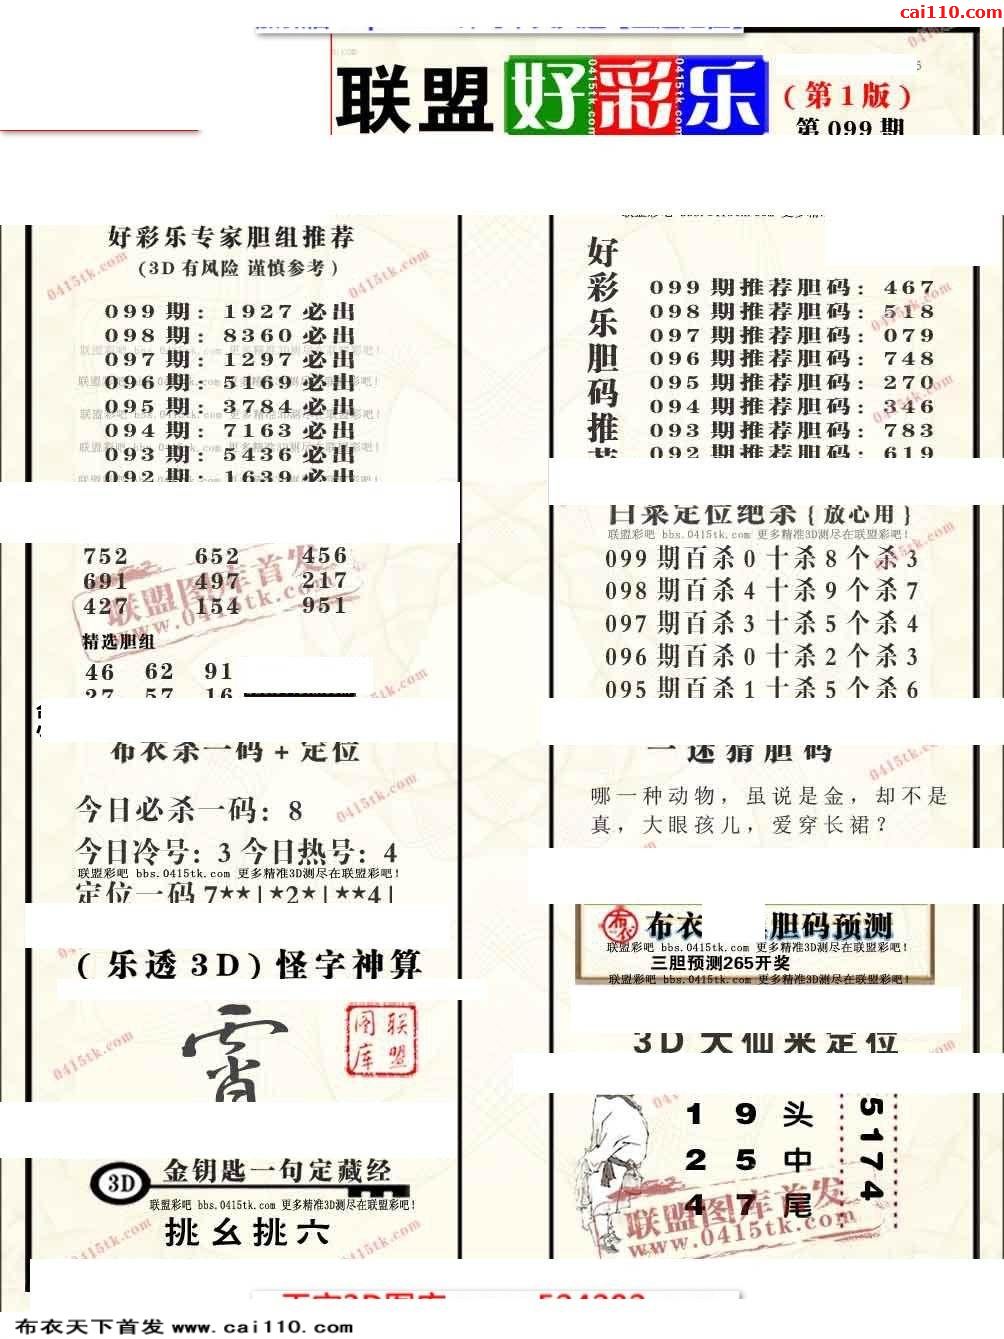 cai110.com
联盟好彩乐
(第1版)
第099期
好彩乐专家胆组推荐
(3D有风险 谨慎参考)
099期: 1927必出
098期: 8360必出
097期: 1297必出
095期: 3784必出
094期: 7163必出
093期: 5436必出
092期: 1639必出
752 652 456
691 497 217
427 154 951
精选胆组
46 62 91
27 57 16
布衣杀一码+定位
今日必杀一码: 8
今日冷号: 3 今日热号: 4
联盟彩吧 bbs.0415tk.com 更多精准3D测尽在联盟彩吧!
定位一码 7**|*2*|**4|
(乐透3D)怪字神算
霄
联盟图库
3D
金钥匙一句定藏经
联盟彩吧 bbs.0415tk.com 更多精准3D测尽在联盟彩吧!
挑幺挑六
好彩乐胆码推荐
099期推荐胆码: 467
098期推荐胆码: 518
097期推荐胆码: 079
096期推荐胆码: 748
095期推荐胆码: 270
094期推荐胆码: 346
093期推荐胆码: 783
092期推荐胆码: 619
白菜定位绝杀{放心用}
联盟彩吧 bbs.0415tk.com 更多精准3D测尽在联盟彩吧!
099期百杀0十杀8个杀3
098期百杀4十杀9个杀7
097期百杀3十杀5个杀4
096期百杀0十杀2个杀3
095期百杀1十杀5个杀6
一迷猜胆码
哪一种动物，虽说是金，却不是
真，大眼孩儿，爱穿长裙？
布衣 胆码预测
联盟彩吧 bbs.0415tk.com 更多精准3D测尽在联盟彩吧!
三胆预测265开奖
联盟彩吧 bbs.0415tk.com 更多精准3D测尽在联盟彩吧!
3D大仙来定位
1 9 头
2 5 中
4 7 尾
5174
联盟图库首发
www.0415tk.com
布衣天下首发 www.cai110.com